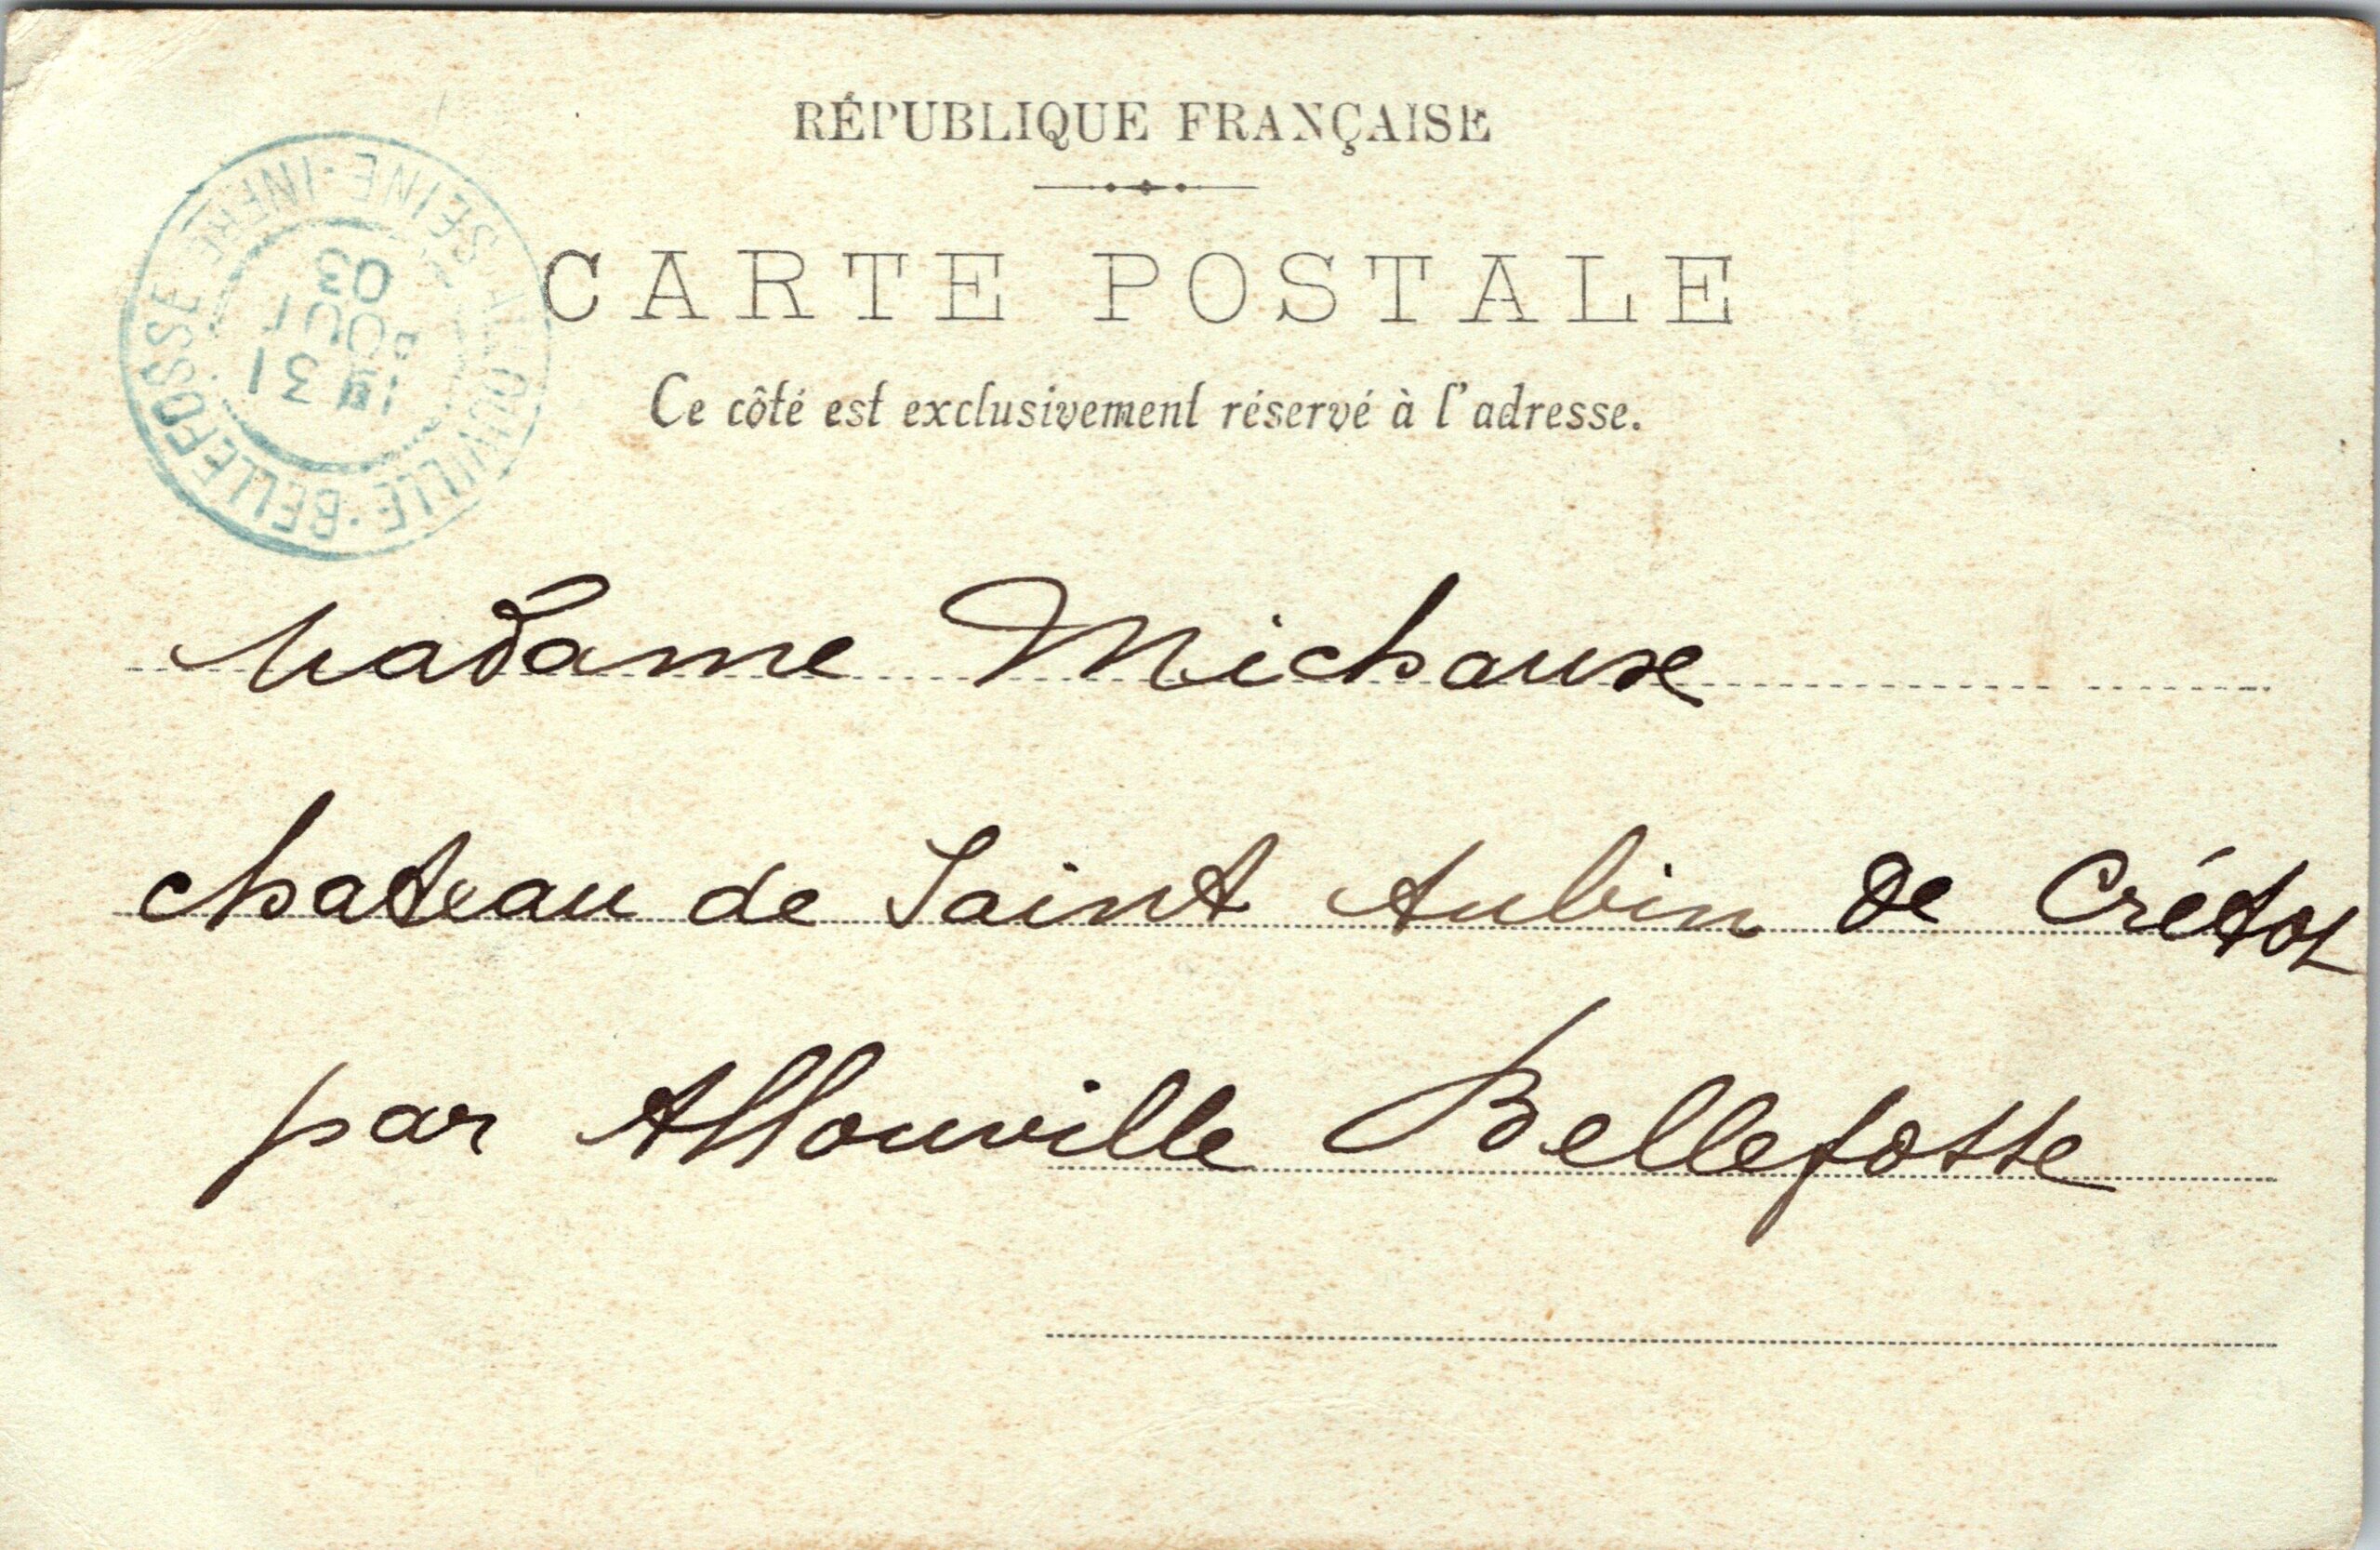 RÉPUBLIQUE FRANÇAISE
CARTE POSTALE
Ce côté est exclusivement réservé à l'adresse.
ALLOUVILLE·BELLEFOSSE
SEINE·INFRE
31
AOUT
03
Madame Michaux
chateau de Saint Aubin de Crétot
par Allouville Bellefosse